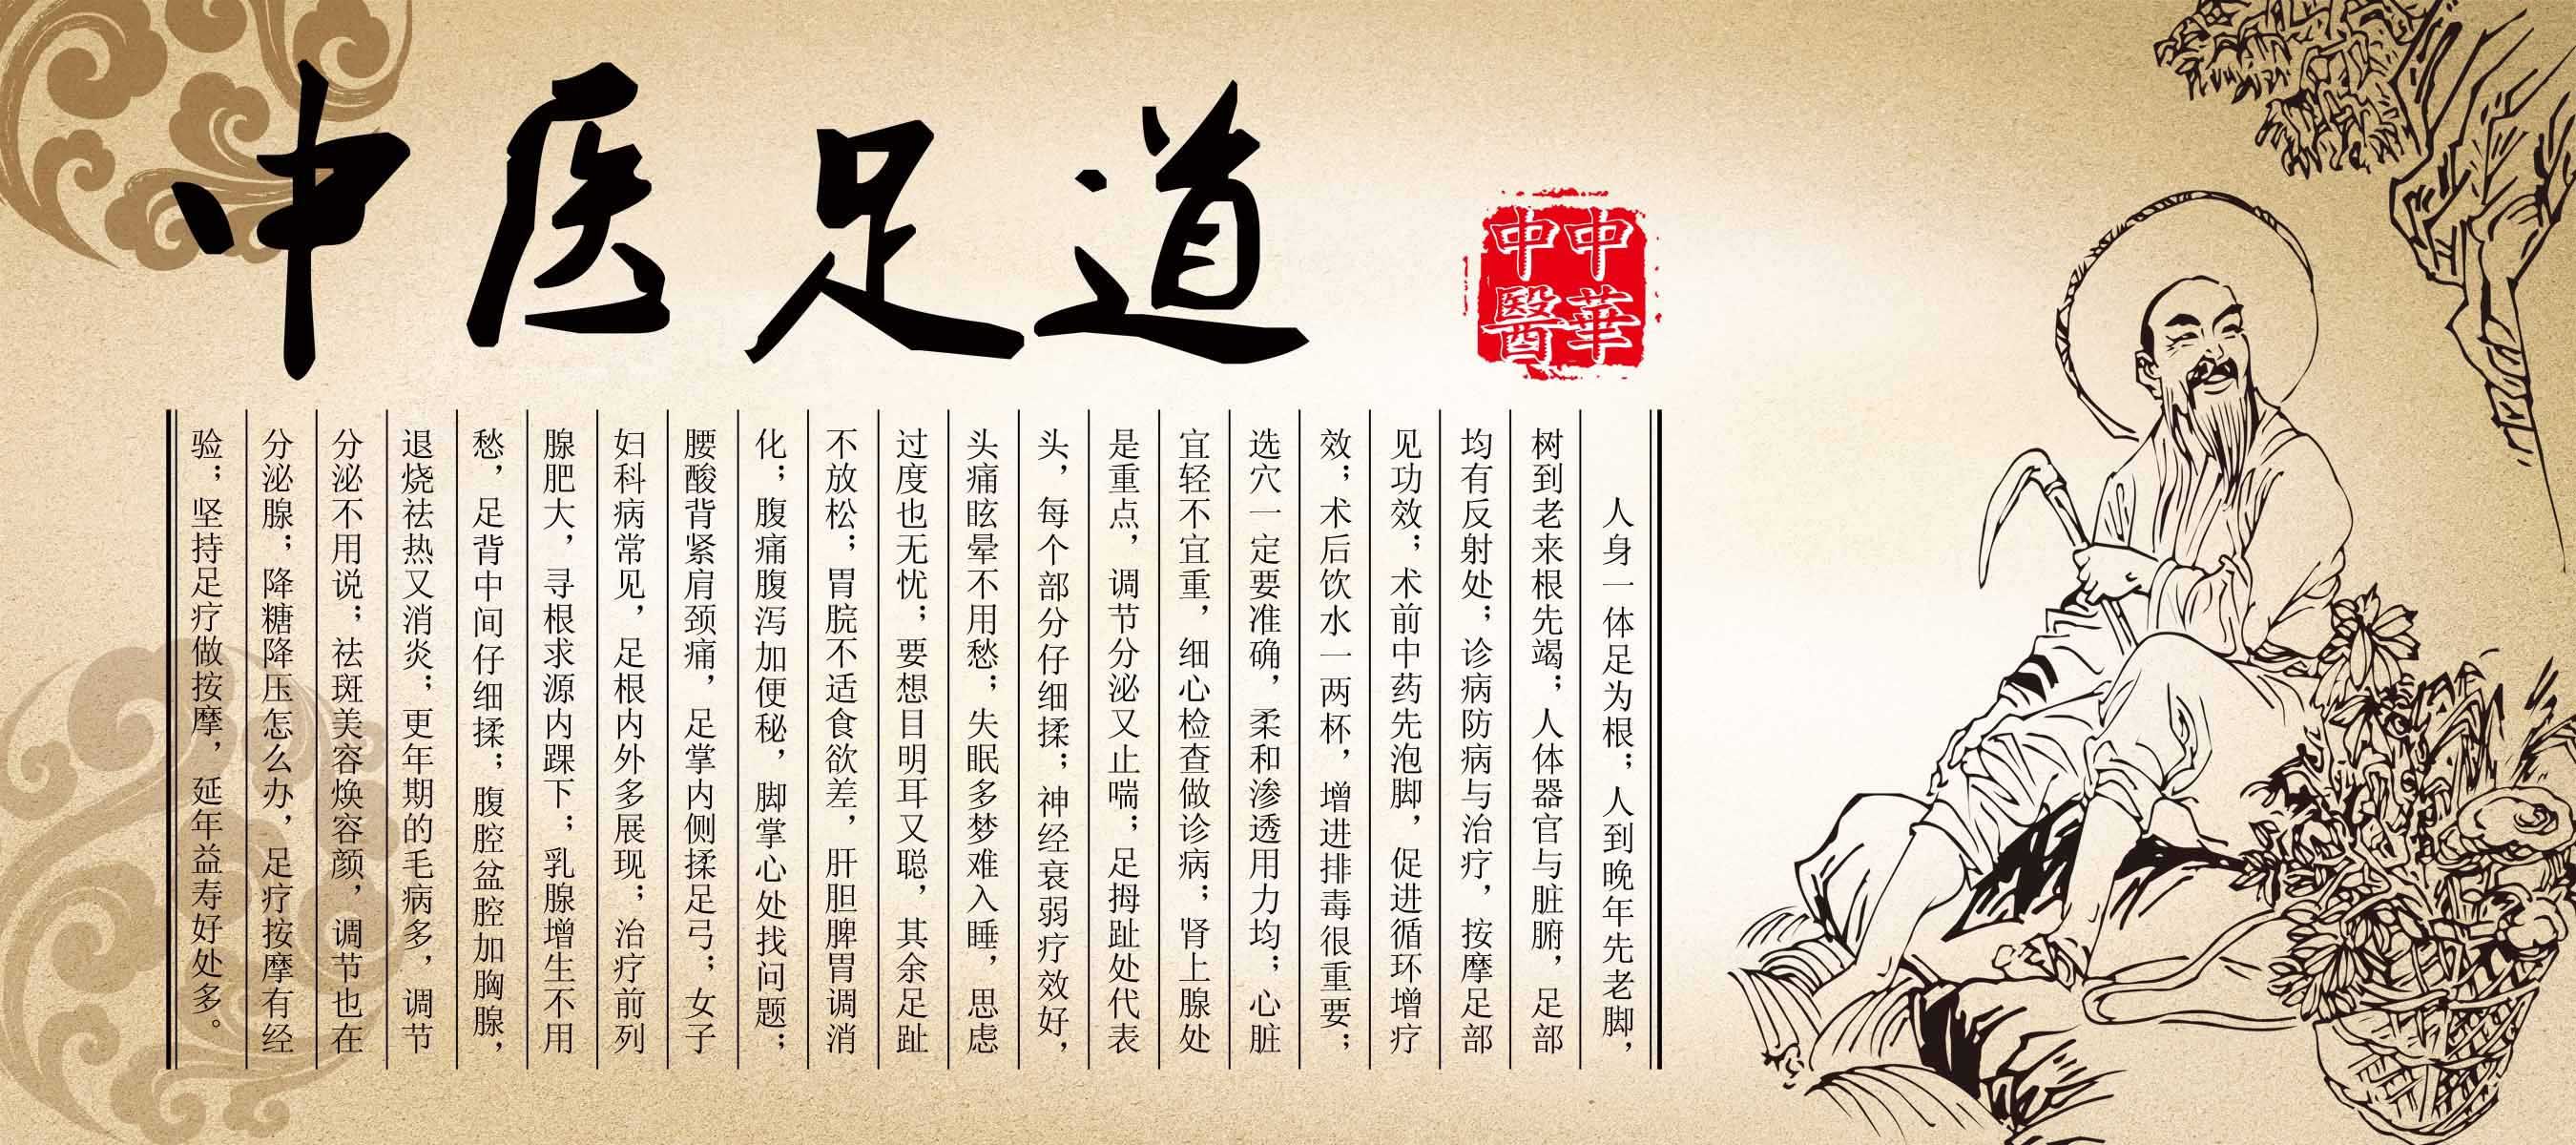 中医足道
中华
中醫
人身一体足为根；人到晚年先老脚，
树到老来根先竭；人体器官与脏腑，足部
均有反射处；诊病防病与治疗，按摩足部
见功效；术前中药先泡脚，促进循环增疗
效；术后饮水一两杯，增进排毒很重要；
选穴一定要准确，柔和渗透用力均；心脏
宜轻不宜重，细心检查做诊病；肾上腺处
是重点，调节分泌又止喘；足拇趾处代表
头，每个部分仔细揉；神经衰弱疗效好，
头痛眩晕不用愁；失眠多梦难入睡，思虑
过度也无忧；要想目明耳又聪，其余足趾
不放松；胃脘不适食欲差，肝胆脾胃调消
化；腹痛腹泻加便秘，脚掌心处找问题；
腰酸背紧肩颈痛，足掌内侧揉足弓；女子
妇科病常见，足根内外多展现；治疗前列
腺肥大，寻根求源内踝下；乳腺增生不用
愁，足背中间仔细揉；腹腔盆腔加胸腺，
退烧祛热又消炎；更年期的毛病多，调节
分泌不用说；祛斑美容焕容颜，调节也在
分泌腺；降糖降压怎么办，足疗按摩有经
验；坚持足疗做按摩，延年益寿好处多。